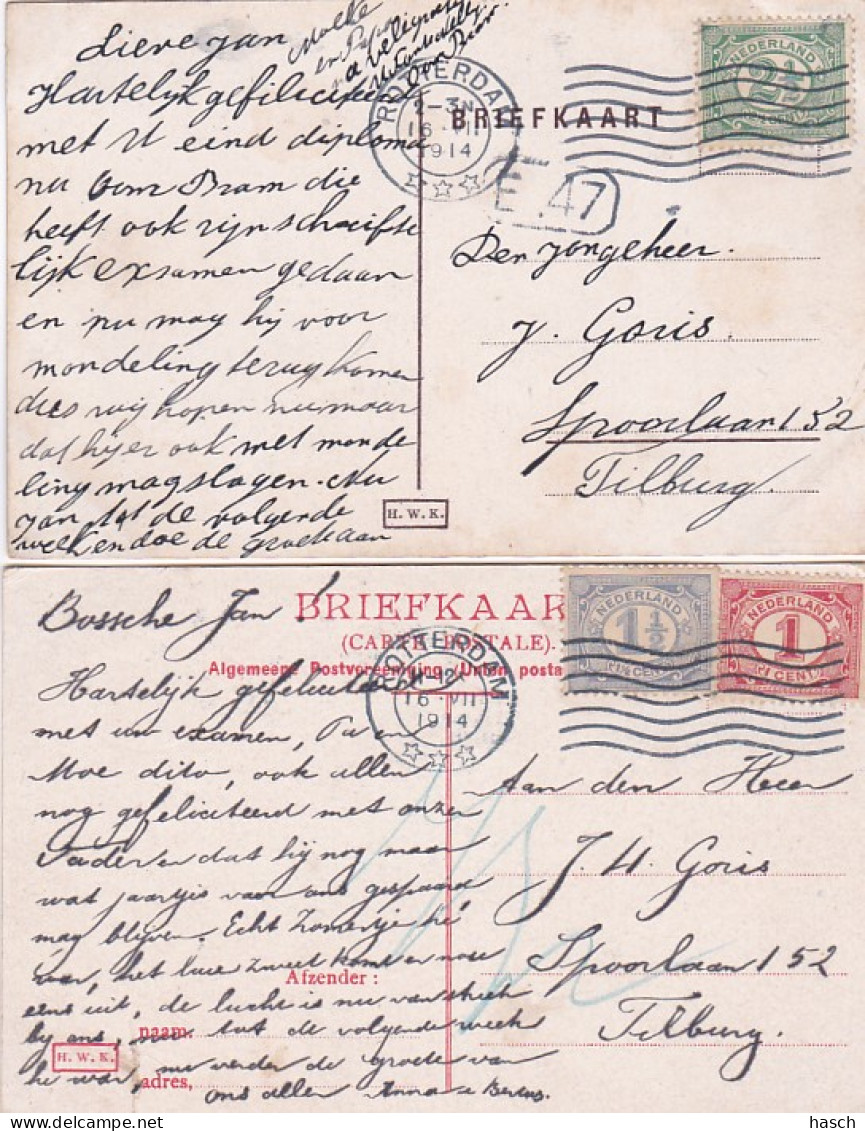 Lieve Jan
Hartelijk gefeliciteerd
met U eind diploma
nu Oom Bram die
heeft ook zijn schrifte
lijk exsamen gedaan
en nu mag hij voor
mondeling terug komen
dus wij hopen nu maar
dat hijer ook met monde
ling mag slagen. Nu
Jan tot de volgende
week en doe de groete aan
Moeke
en Papa
Oom Bram
ROTTERDAM
2-3N
16 VII
1914
BRIEFKAART
E. 47
NEDERLAND
2½
Den jongeheer.
J. Goris.
Spoorlaan 152
Tilburg.
H. W. K.
Bossche Jan!
BRIEFKAAR
(CARTE POSTALE).
Algemeene Postvereeniging (Union posta
ROTTERDAM
11-12
16 VII
1914
1½
NEDERLAND
1
CENT
Hartelijk gefeliciteer
met uw examen, Pa en
Moe dito, ook allen
nog gefeliciteerd met onzen
Vader en dat hij nog maar
wat jaartjes van ons gespaard
mag blijven. Echt zomertje hé
war, het luie zweet komt er nose
eens uit, de lucht is nu van streek
by ans, nu tot de volgende week
he war, nu verder de groete van
ons allen Anna e Bertus.
Afzender:
naam.
adres,
H. W. K.
Aan den Heer
J. H. Goris
Spoorlaan 152
Tilburg.